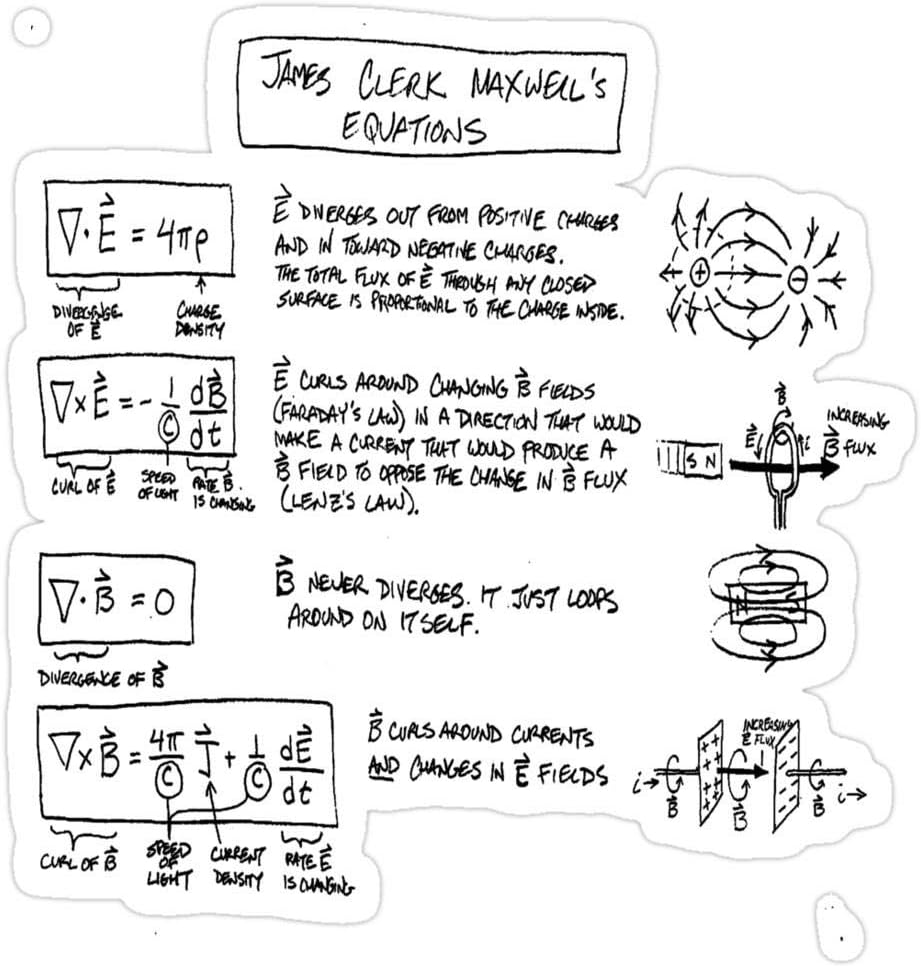 JAMES CLERK MAXWELL'S
EQUATIONS
∇·E⃗ = 4πρ
DIVERGENCE
OF E⃗
CHARGE
DENSITY
E⃗ DIVERGES OUT FROM POSITIVE CHARGES
AND IN TOWARD NEGATIVE CHARGES.
THE TOTAL FLUX OF E⃗ THROUGH ANY CLOSED
SURFACE IS PROPORTIONAL TO THE CHARGE INSIDE.
+ −
∇×E⃗ = - 1/C dB⃗/dt
CURL OF E⃗
SPEED
OF LIGHT
RATE B⃗
IS CHANGING
E⃗ CURLS AROUND CHANGING B⃗ FIELDS
(FARADAY'S LAW) IN A DIRECTION THAT WOULD
MAKE A CURRENT THAT WOULD PRODUCE A
B⃗ FIELD TO OPPOSE THE CHANGE IN B⃗ FLUX
(LENZ'S LAW).
B⃗
E⃗
i
S N
INCREASING
B⃗ FLUX
∇·B⃗ = 0
DIVERGENCE OF B⃗
B⃗ NEVER DIVERGES. IT JUST LOOPS
AROUND ON ITSELF.
N S
∇×B⃗ = 4π/C J⃗ + 1/C dE⃗/dt
CURL OF B⃗
SPEED
OF
LIGHT
CURRENT
DENSITY
RATE E⃗
IS CHANGING
B⃗ CURLS AROUND CURRENTS
AND CHANGES IN E⃗ FIELDS
INCREASING
E⃗ FLUX
i→
B⃗
B⃗
B⃗
i→